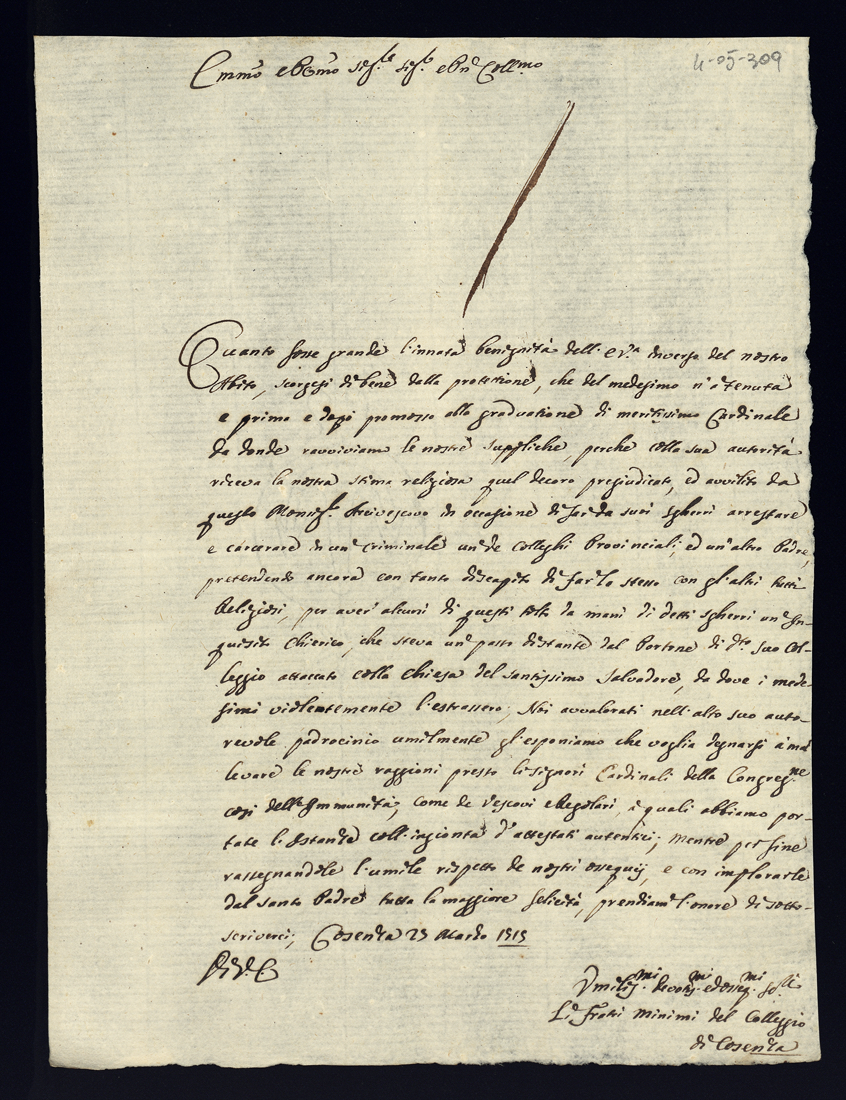 4-05-309
Emmo e Rmo Sigre Sigr e Pne Collmo
Quanto fosse grande l'innata benignità dell'E.Va inverso del nostro
Abito, scorgesi di bene dalla protettione, che del medesimo n'à tenuta
e prima e dopò promosso alla graduatione di meritissimo Cardinale
da donde ravviviamo le nostre suppliche, perche colla sua autorità
riceva la nostra stima religiosa quel decoro pregiudicato, ed avvilito da
questo Monsigr Arcivescovo in occasione di far da suoi sgherri arrestare
e carcerare in un criminale un de Colleghi Provinciali, ed un altro Padre,
pretendendo ancora con tanto discapito di far lo stesso con gl'altri tutti
Religiosi, per aver alcuni di questi tolto da mani di detti sgherri un In-
quisito Chierico, che steva un passo distante dal Portone di do suo Col-
leggio attaccato colla Chiesa del Santissimo Salvadore, da dove i mede-
simi violentemente l'estrassero; Noi avvalorati nell'alto suo auto-
revole padrocinio umilmente gl'esponiamo che voglia degnarsi à ma
levare le nostre raggioni presto li Signori Cardinali della Congregne
così dell'Immunità, come de Vescovi e Regolari, à quali abbiamo por-
tate l'istanze coll'ingionta d'attestati autentici; mentre per fine
rassegnandole l'umile rispetto de nostri ossequij, e con implorarle
dal Santo Padre tutta la maggiore felicità, prendiam l'onore di sotto-
scriverci; Cosenza 23 Marzo 1715
Di V. E.
Umilissmi devotmi ed osseqmi
Li Frati Minimi del Colleggio
di Cosenza